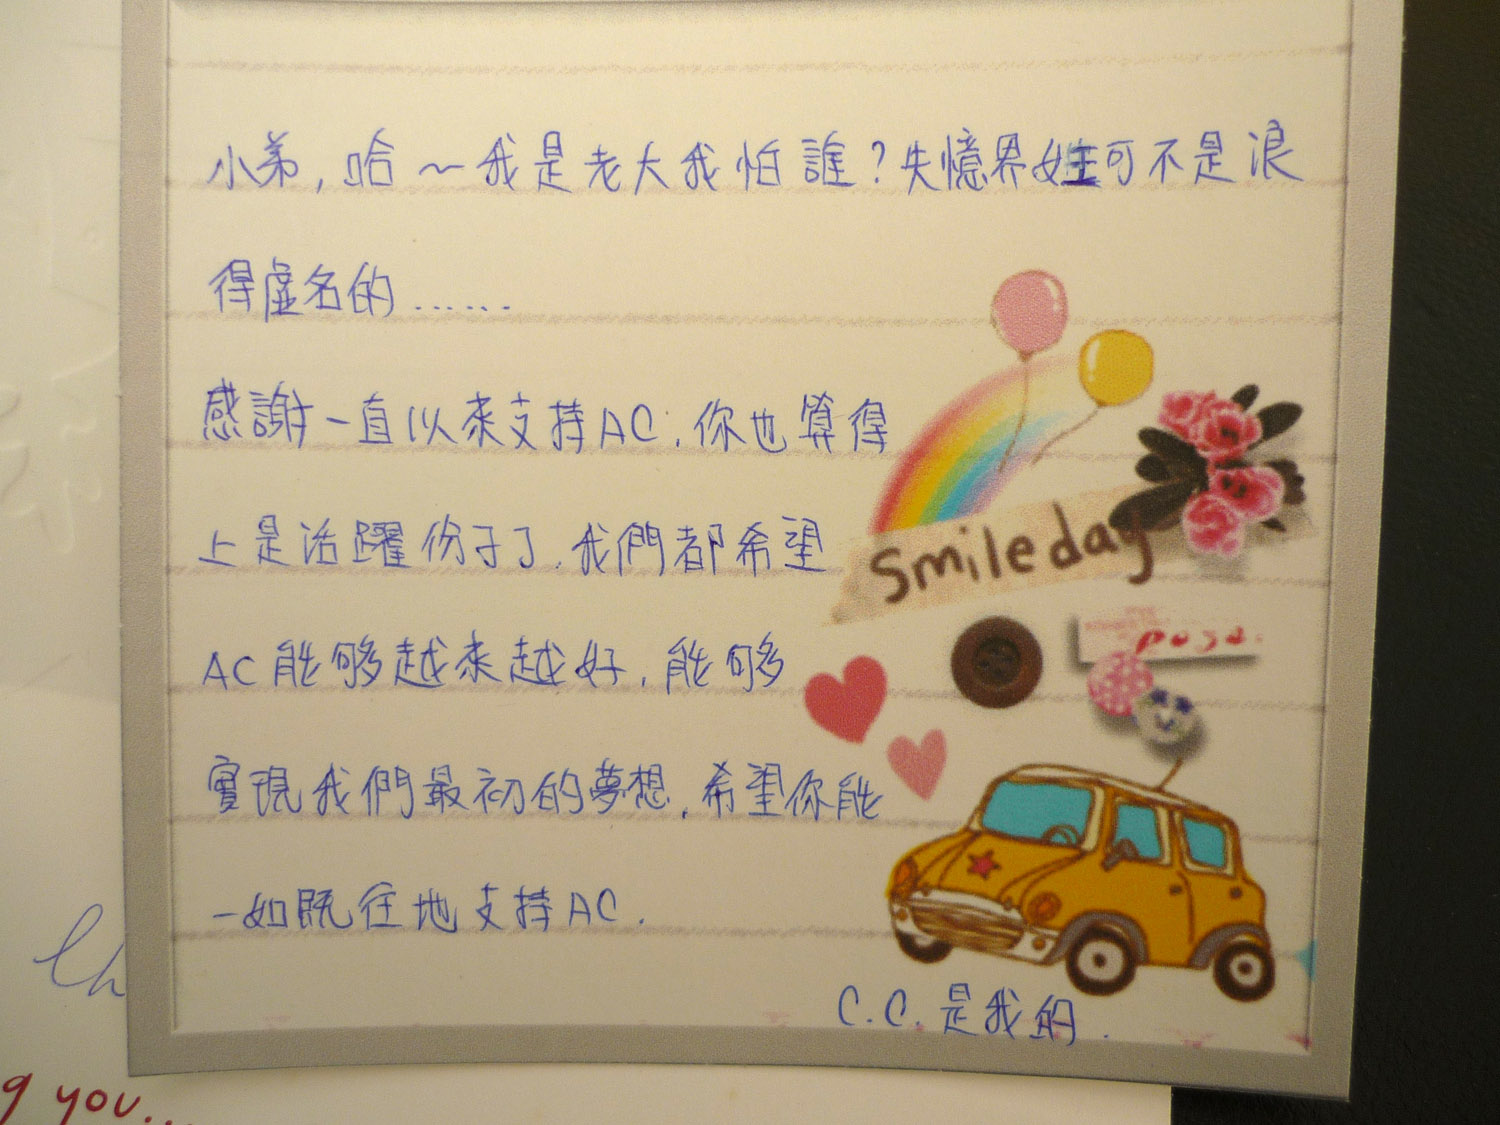 小弟,哈~我是老大我怕誰?失憶界女王可不是浪
得虛名的……
感謝一直以來支持AC,你也算得
上是活躍份子了,我們都希望
AC能够越來越好,能够
實現我們最初的夢想,希望你能
一如既往地支持AC.
C.C.是我的.
smile day
g you...